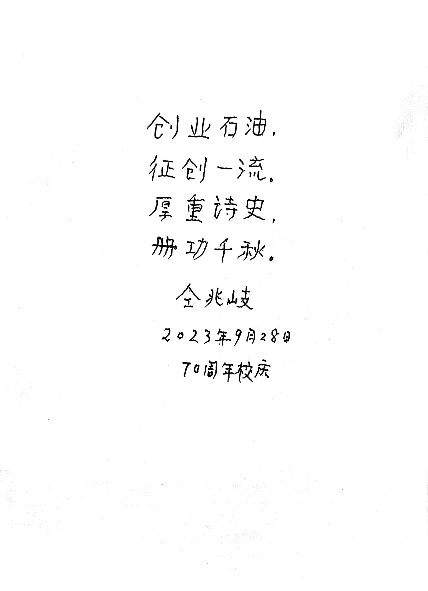 创业石油，
征创一流。
厚重诗史，
册功千秋。
仝兆岐
2023年9月28日
70周年校庆